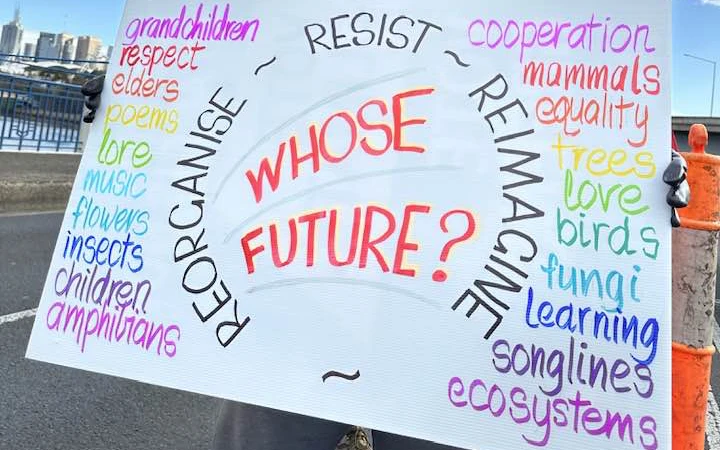 grandchildren
respect
elders
poems
lore
music
flowers
insects
children
amphibians
REORGANISE ~ RESIST ~ REIMAGINE ~
WHOSE
FUTURE?
cooperation
mammals
equality
trees
love
birds
fungi
Learning
songlines
ecosystems